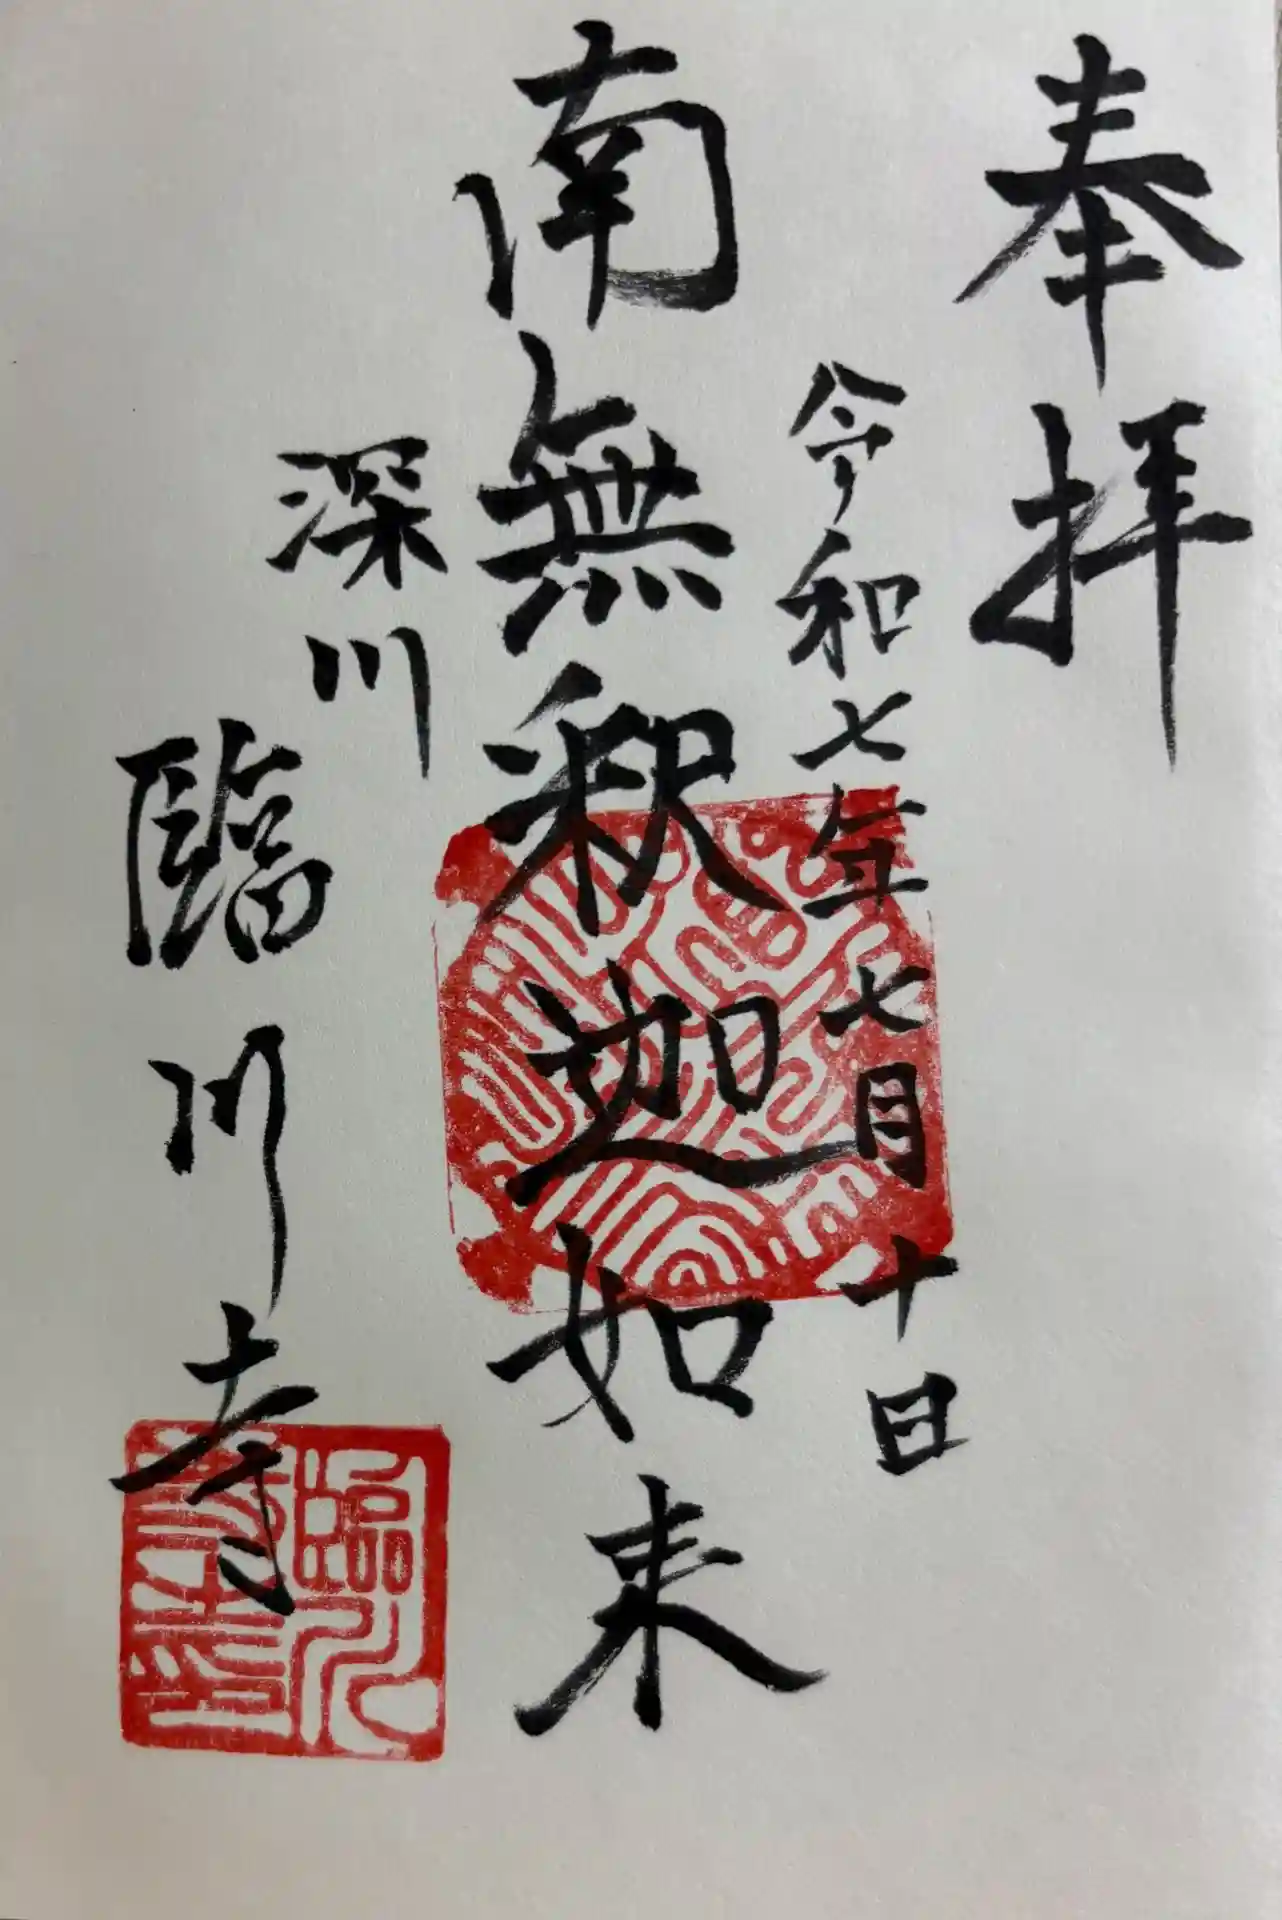 奉拝
令和七年七月十日
南無釈迦如来
深川
臨川寺